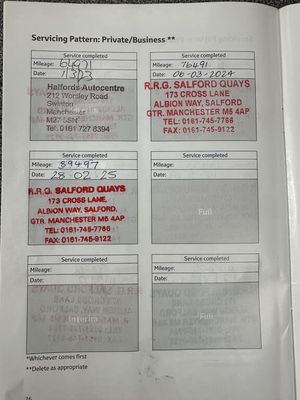 Servicing Pattern: Private/Business **
Service completed
Mileage: 64971
Date: 11323
Halfords Autocentre
212 Worsley Road
Swinton
Manchester
M27 5SN
Tel: 0161 727 8394
Service completed
Mileage: 76491
Date: 06-03-2024
R.R.G. SALFORD QUAYS
173 CROSS LANE
ALBION WAY, SALFORD
GTR. MANCHESTER M5 4AP
TEL: 0161-745-7766
FAX: 0161-745-9122
Service completed
Mileage: 89497
Date: 28 02 25
R.R.G. SALFORD QUAYS
173 CROSS LANE,
ALBION WAY, SALFORD,
GTR. MANCHESTER M5 4AP
TEL: 0161-745-7766
FAX: 0161-745-9122
Service completed
Mileage:
Date:
Full
Service completed
Mileage:
Date:
Interim
Service completed
Mileage:
Date:
Full
*Whichever comes first
**Delete as appropriate
26